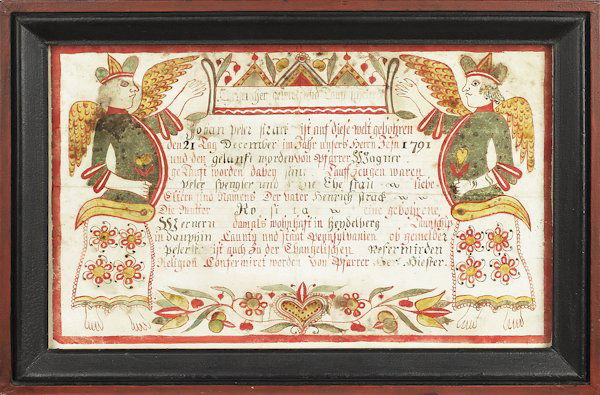 Johan peter strack ist auf diese welt gebohren
den 21 Tag December im Jahr unsers Herrn Jesu 1791
und den getauft worden von Pfarrer Wagner
worden dabey sind Tauff Zeugen waren
Peter spengler und seine Ehe frau siebe
Eltern sind Namens Der vater Henrich strack
Die Mutter Rosina eine gebohrene
Wernern damals wohnhaft in heydelberg Taunschip
in Dauphin County und staat Pennsylvanien ob gemelder
peter ist auch in der Evangelischen Reformirden
Religion Confermiret worden von Pfarrer Hiester